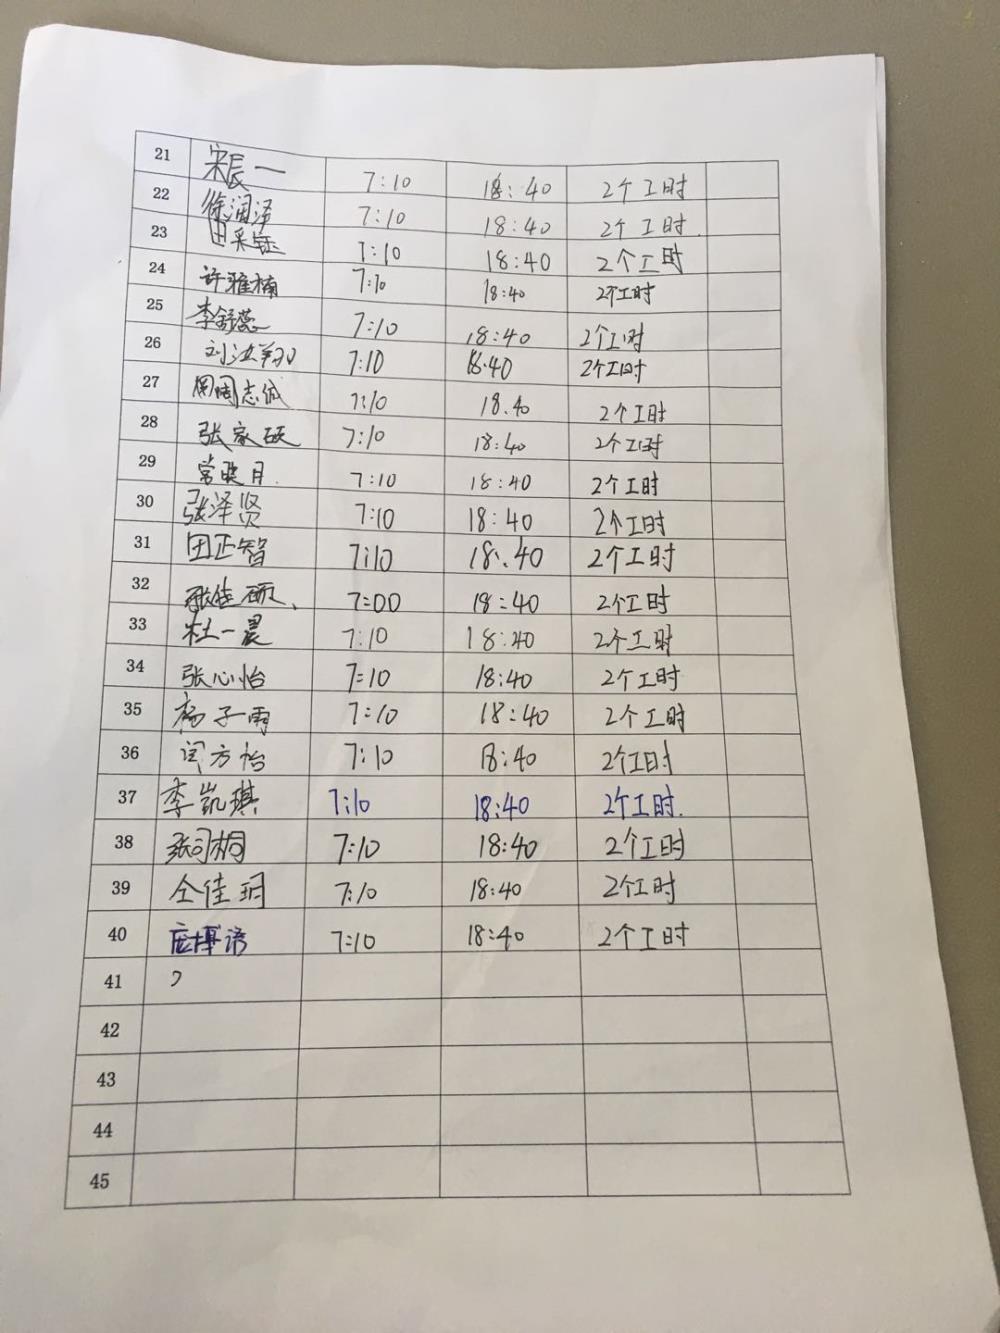 21 宋辰一 7:10 18:40 2个工时
22 徐润泽 7:10 18:40 2个工时.
23 田采钰 7:10 18:40 2个工时
24 许雅楠 7:10 18:40 2个工时
25 李舒蕊 7:10 18:40 2个工时
26 刘洪翔 7:10 18:40 2个工时
27 周志诚 7:10 18.40 2个工时
28 张家硕 7:10 18:40 2个工时
29 常晓月. 7:10 18:40 2个工时
30 张泽贤 7:10 18:40 2个工时
31 田正智 7:10 18:.40 2个工时
32 张佳硕、 7:00 18:40 2个工时
33 杜一晨 7:10 18:40 2个工时
34 张心怡 7:10 18:40 2个工时
35 杨子雨 7:10 18:40 2个工时
36 闫方怡 7:10 18:40 2个工时
37 李凯琪 7:10 18:40 2个工时.
38 张司桐 7:10 18:40 2个工时
39 仝佳玥 7:10 18:40 2个工时
40 7:10 18:40 2个工时
41
42
43
44
45